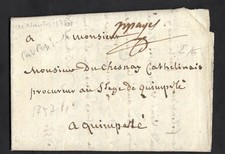 ppayé
a Monsieur
Monsieur Du Chesnay Cathelinais
procureur au Siege de quimperlé
a quimperlé